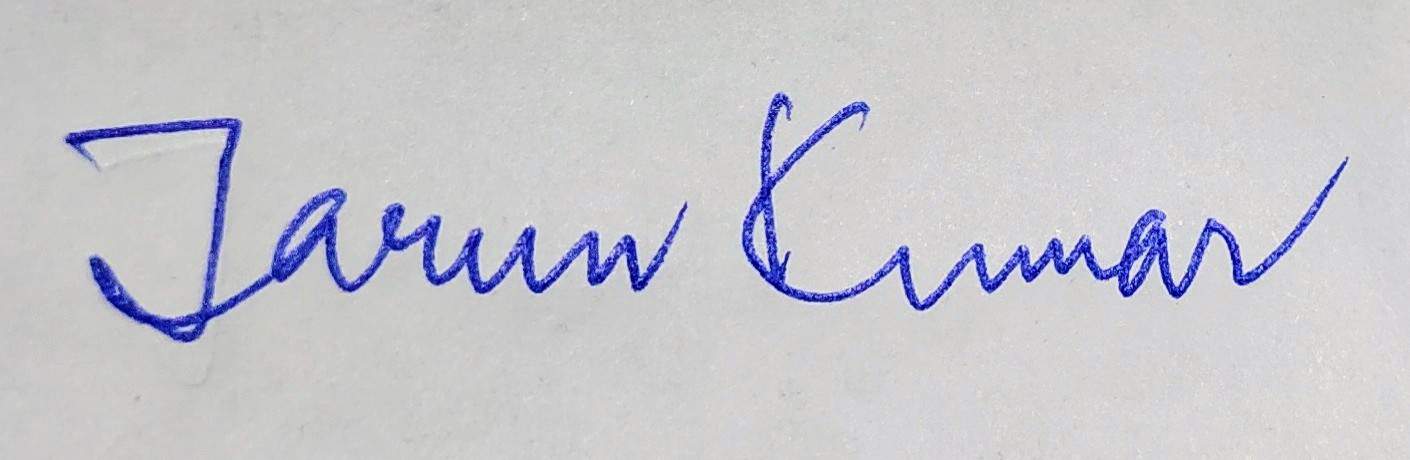 Tarun Kumar